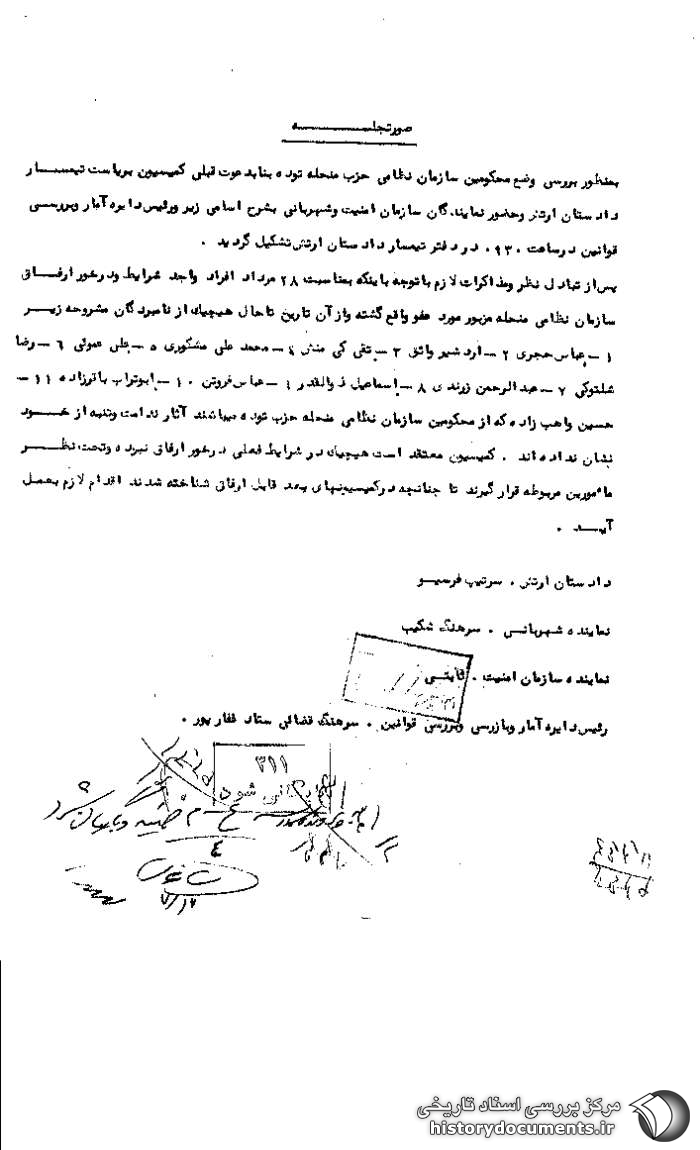 صورتجلسه
بمنظور بررسی وضع محکومین سازمان نظامی حزب منحله توده بنابدعوت قبلی کمیسیون بریاست تیمسار
دادستان ارتش وحضور نمایندگان سازمان امنیت وشهربانی بشرح اسامی زیر ورئیس دایره آمار وبررسی
قوانین درساعت ۰۹۳۰ در دفتر تیمسار دادستان ارتش تشکیل گردید .
پس از تبادل نظر ومذاکرات لازم باتوجه باینکه بمناسبت ۲۸ مرداد افراد واجد شرایط ودرخور ارفاق
سازمان نظامی منحله مزبور مورد عفو واقع گشته واز آن تاریخ تاحال هیچیک از نامبردگان مشروحه زیر
۱ – عباس حجری ۲ – اردشیر واثق ۳ – تقی کی منش ٤ – محمد علی مشکوری ٥ – علی عموئی ٦ – رضا
شلتوکی ۷ – عبدالرحمن زرندی ۸ – اسماعیل ذوالقدر ۹ – عباس فروتن ۱۰ – ابوتراب باقرزاده ۱۱ –
حسین واهب زاده که از محکومین سازمان نظامی منحله حزب توده میباشند آثار ندامت وتنبه از خود
نشان نداده اند . کمیسیون معتقد است هیچیک در شرایط فعلی درخور ارفاق نبوده وتحت نظر
مأمورین مربوطه قرار گیرند تا چنانچه درکمیسیونهای بعد قابل ارفاق شناخته شدند اقدام لازم بعمل
آید .
دادستان ارتش . سرتیپ فرسیو
نماینده شهربانی . سرهنگ شکیب
نماینده سازمان امنیت . ثابتی
رئیس دایره آمار وبازرسی وبررسی قوانین . سرهنگ قضائی ستاد غفارپور .
۳۱۱
شود
٤
مرکز بررسی اسناد تاریخی
historydocuments.ir